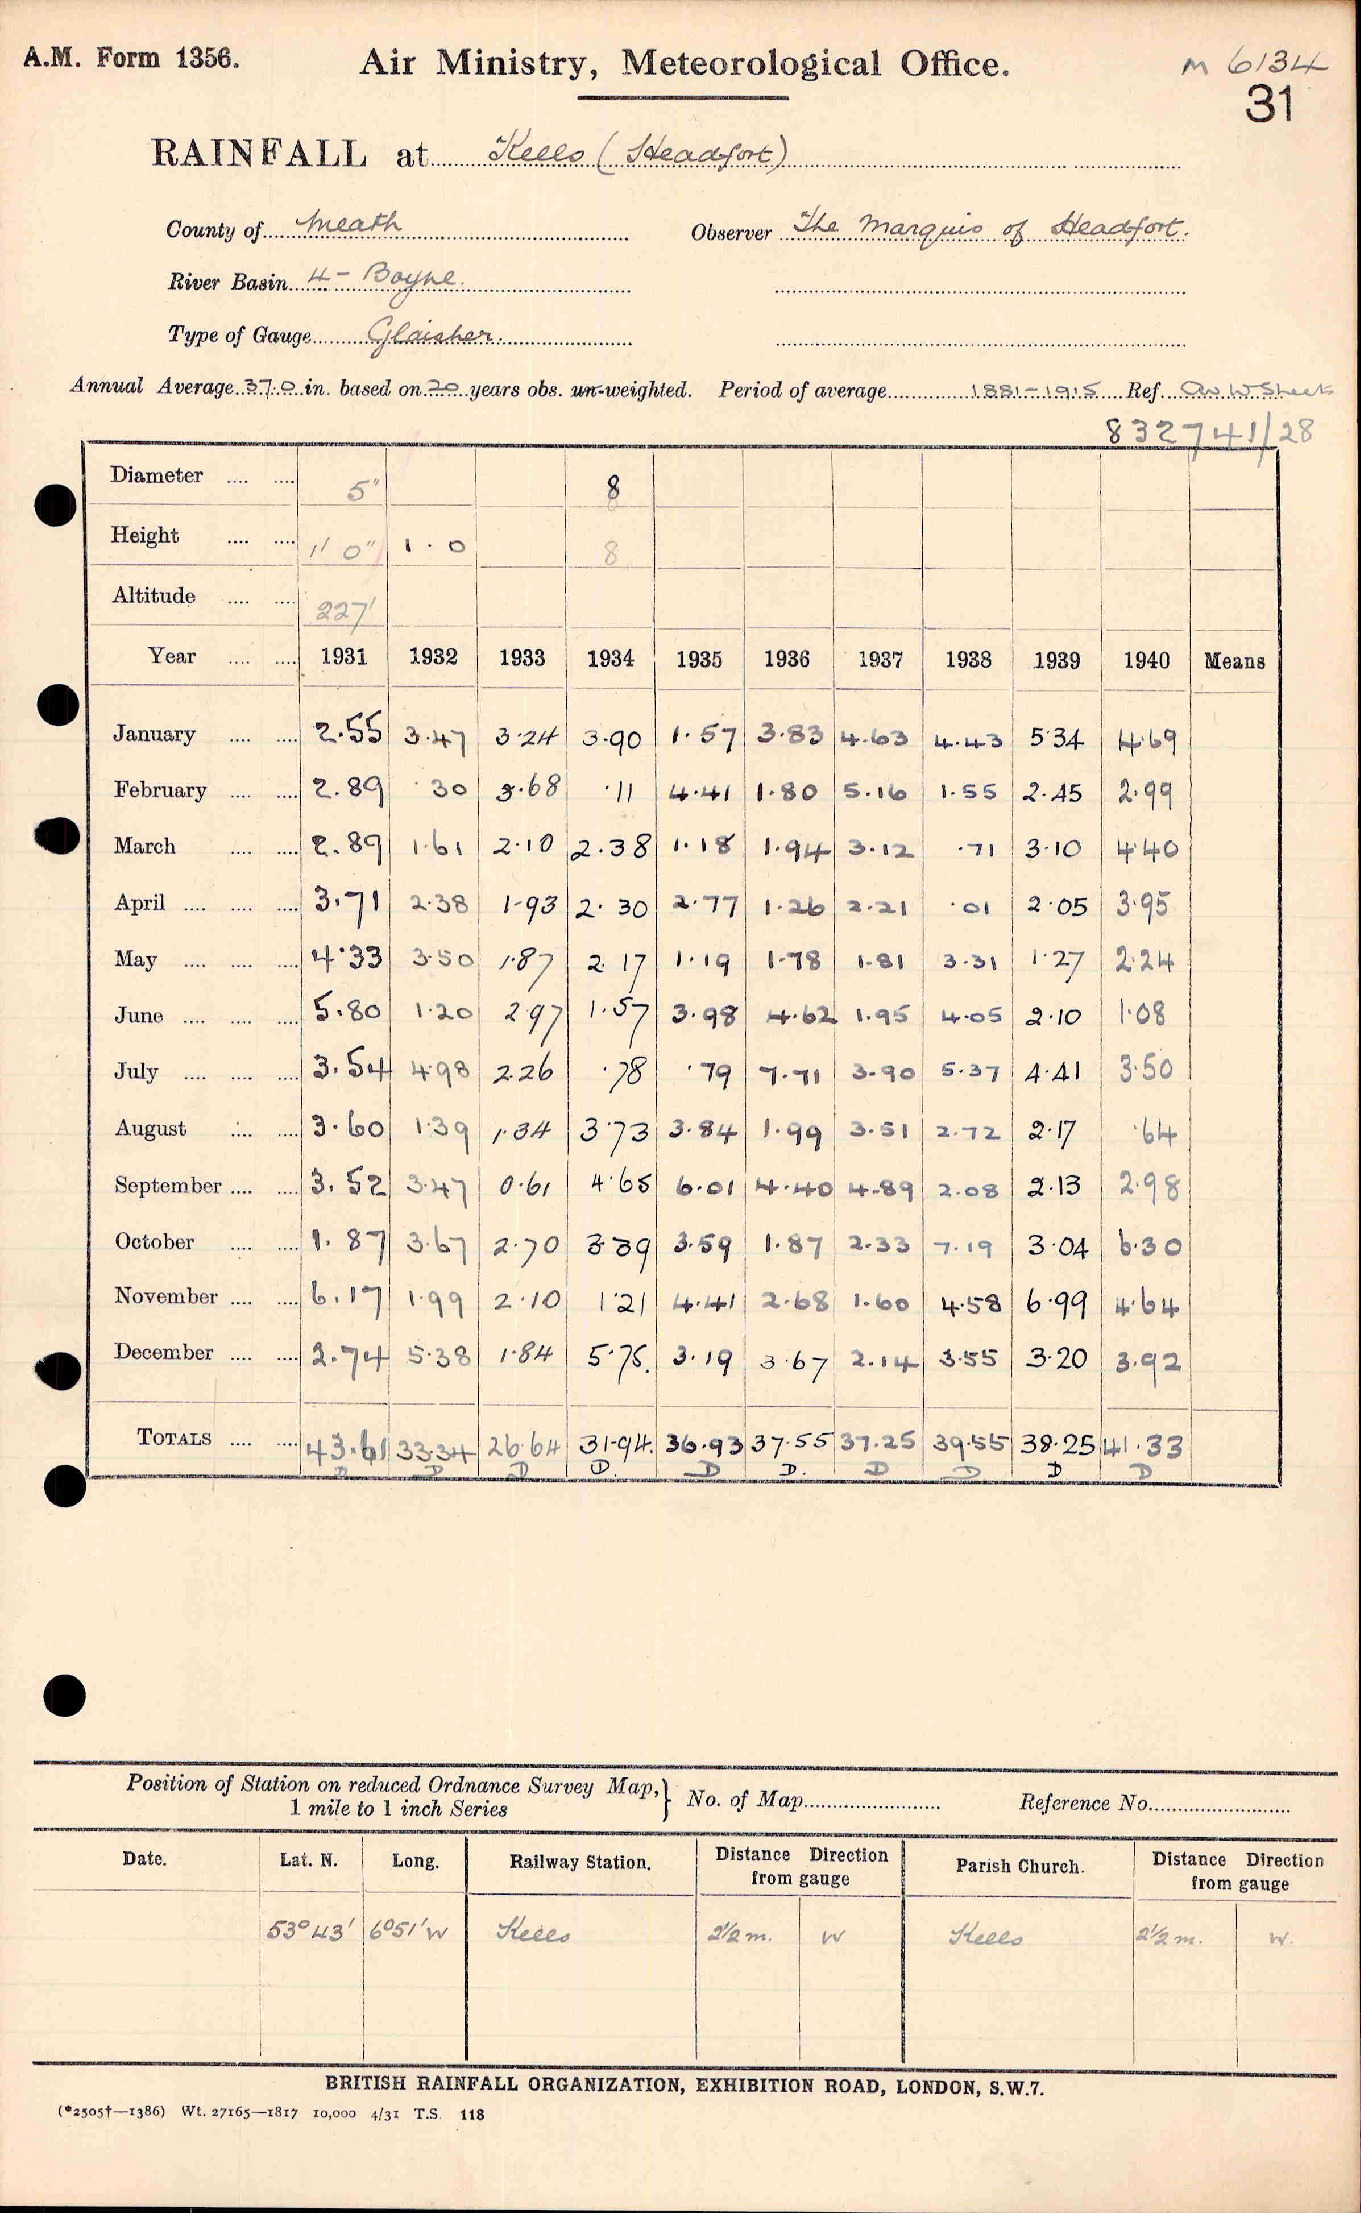 A.M. Form 1356. Air Ministry, Meteorological Office. M 6134
31
RAINFALL at Kells (Headfort)
County of Meath Observer The Marquis of Headfort.
River Basin 4 - Boyne.
Type of Gauge Glaisher.
Annual Average 37.0 in. based on 20 years obs. un-weighted. Period of average 1881-1915 Ref. Av W Sheets
832741/28
Diameter 5" 8
Height 1' 0" 1.0 8
Altitude 227'
Year 1931 1932 1933 1934 1935 1936 1937 1938 1939 1940 Means
January 2.55 3.47 3.24 3.90 1.57 3.83 4.63 4.43 5.34 4.69
February 2.89 .30 3.68 .11 4.41 1.80 5.16 1.55 2.45 2.99
March 2.89 1.61 2.10 2.38 1.18 1.94 3.12 .71 3.10 4.40
April 3.71 2.38 1.93 2.30 2.77 1.26 2.21 .01 2.05 3.95
May 4.33 3.50 1.87 2.17 1.19 1.78 1.81 3.31 1.27 2.24
June 5.80 1.20 2.97 1.57 3.98 4.62 1.95 4.05 2.10 1.08
July 3.54 4.98 2.26 .78 .79 7.71 3.90 5.37 4.41 3.50
August 3.60 1.39 1.34 3.73 3.84 1.99 3.51 2.72 2.17 .64
September 3.52 3.47 0.61 4.65 6.01 4.40 4.89 2.08 2.13 2.98
October 1.87 3.67 2.70 3.39 3.59 1.87 2.33 7.19 3.04 6.30
November 6.17 1.99 2.10 1.21 4.41 2.68 1.60 4.58 6.99 4.64
December 2.74 5.38 1.84 5.75. 3.19 3.67 2.14 3.55 3.20 3.92
TOTALS 43.61 33.34 26.64 31.94. 36.93 37.55 37.25 39.55 38.25 41.33
D D D D. D D. D D D D
Position of Station on reduced Ordnance Survey Map, No. of Map Reference No.
1 mile to 1 inch Series
Date. Lat. N. Long. Railway Station. Distance Direction from gauge Parish Church. Distance Direction from gauge
53° 43' 6° 51' W Kells 2½ m. W Kells 2½ m. W.
BRITISH RAINFALL ORGANIZATION, EXHIBITION ROAD, LONDON, S.W.7.
(*2505†—1386) Wt. 27165—1817 10,000 4/31 T.S. 118